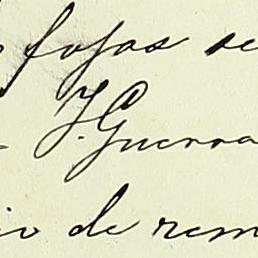 fojas se
J. Guerra
io de rem